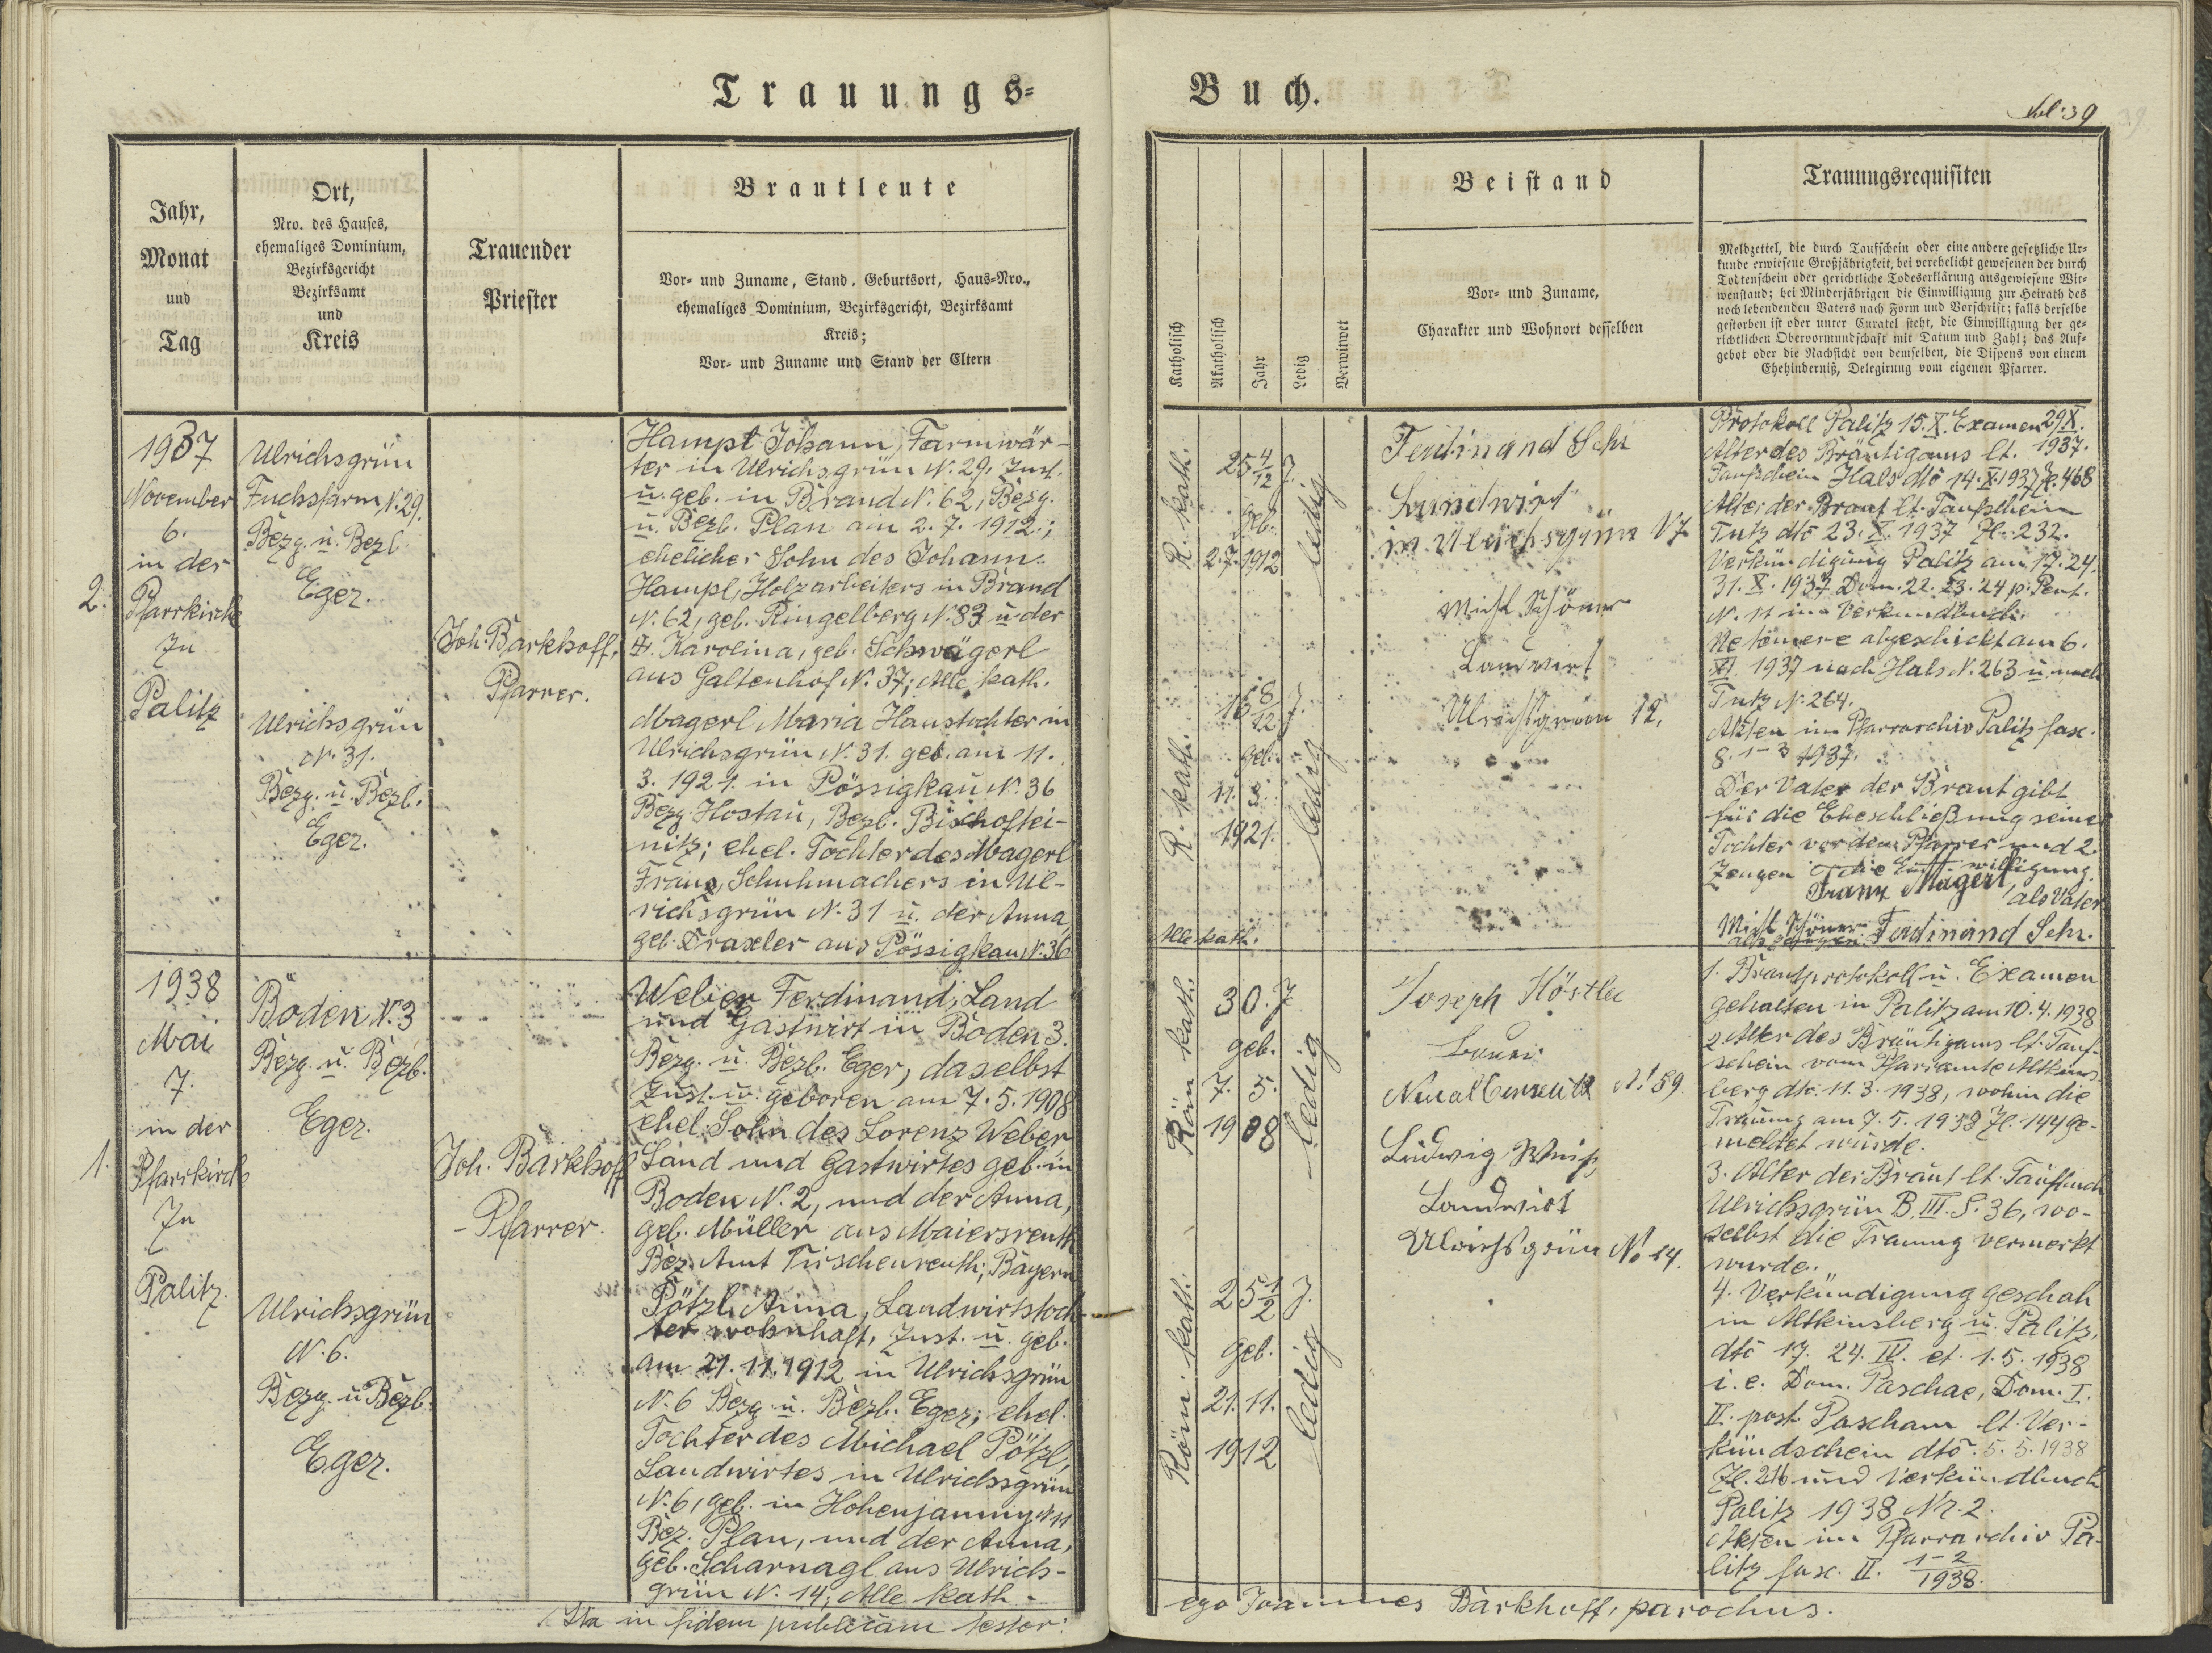 Trauungs=
Buch.
fol: 39
Jahr,
Monat
und
Tag
Ort,
Nro. des Hauses,
ehemaliges Dominium,
Bezirksgericht
Bezirksamt
und
Kreis
Trauender
Priester
Brautleute
Vor- und Zuname, Stand, Geburtsort, Haus-Nro.,
ehemaliges Dominium, Bezirksgericht, Bezirksamt
Kreis;
Vor- und Zuname und Stand der Eltern
Katholisch
Akatholisch
Jahr
Ledig
Verwitwet
Beistand
Vor- und Zuname,
Charakter und Wohnort desselben
Trauungsrequisiten
Meldzettel, die durch Taufschein oder eine andere gesetzliche Ur-
kunde erwiesene Großjährigkeit, bei verehelicht gewesenen der durch
Todtenschein oder gerichtliche Todeserklärung ausgewiesene Wit-
wenstand; bei Minderjährigen die Einwilligung zur Heirath des
noch lebendenden Vaters nach Form und Vorschrift; falls derselbe
gestorben ist oder unter Curatel steht, die Einwilligung der ge-
richtlichen Obervormundschaft mit Datum und Zahl; das Auf-
gebot oder die Nachsicht von demselben, die Dispens von einem
Ehehinderniß, Delegirung vom eigenen Pfarrer.
2.
1937
November
6.
in der
Pfarrkirche
zu
Palitz
Ulrichsgrün
Fuchsfarm N. 29.
Bezg. u. Bezb.
Eger.
Ulrichsgrün
N. 31.
Bezg. u. Bezb.
Eger.
Joh. Barkhoff,
Pfarrer.
Hampl Johann, Farmwär-
ter in Ulrichsgrün N. 29, zust.
u. geb. in Brand N. 62, Bezg.
u. Bezb. Plan am 2. 7. 1912;
ehelicher Sohn des Johann
Hampl, Holzarbeiters in Brand
N. 62, geb. Ringelberg N. 83 u. der
Karolina, geb. Schwägerl
aus Galtenhof N. 37; Alle kath.
Magerl Maria Haustochter in
Ulrichsgrün N. 31. geb. am 11.
3. 1921. in Pössigkau N. 36
Bezg. Hostau, Bezb. Bischoftei-
nitz; ehel. Tochter des Magerl
Franz, Schuhmachers in Ul-
richsgrün N. 31 u. der Anna,
geb. Draxler aus Pössigkau N. 36
R. kath.
25 4/12 J.
geb.
2. 7. 1912
ledig
R. kath.
16 8/12 J.
geb.
11. 3.
1921.
ledig
Alle kath.
Ferdinand Sehr
Landwirt
in Ulrichsgrün 17
Mich Schöner
Landwirt
Ulrichsgrün 12.
Protokoll Palitz 15. X. Examen 29. X.
Alter des Bräutigams lt. 1937.
Taufschein Hals dto 14. X. 1937 Zl. 468
Alter der Braut lt. Taufschein
Tutz dto 23. X. 1937 Zl. 232.
Verkündigung Palitz am 17. 24.
31. X. 1937 Dom. 22. 23. 24 p. Pent.
N. 11 im Verkündbuch.
Ne temere abgeschickt am 6.
XI. 1937 nach Hals N. 263 u. nach
Tutz N. 264.
Akten im Pfarrarchiv Palitz fasc.
8. 1-3 1937.
Der Vater der Braut gibt
für die Eheschließung seiner
Tochter vor dem Pfarrer und 2.
Zeugen die Einwilligung.
Franz Magerl, als Vater
Mich Schöner Ferdinand Sehr.
als Zeugen
1.
1938
Mai
7.
in der
Pfarrkirche
zu
Palitz.
Boden N. 3
Bezg. u. Bezb.
Eger.
Ulrichsgrün
N. 6.
Bezg. u. Bezb.
Eger.
Joh. Barkhoff
- Pfarrer.
Weber Ferdinand, Land
und Gastwirt in Boden 3.
Bezg. u. Bezb. Eger, daselbst
zust. u. geboren am 7. 5. 1908
ehel. Sohn des Lorenz Weber
Land und Gastwirtes geb. in
Boden N. 2, und der Anna,
geb. Müller aus Maiersreuth
Bez. Amt Tirschenreuth, Bayern
Pötzl Anna, Landwirtstoch-
ter wohnhaft, zust. u. geb.
am 21. 11. 1912 in Ulrichsgrün
N. 6 Bezg. u. Bezb. Eger; ehel.
Tochter des Michael Pötzl,
Landwirtes in Ulrichsgrün
N. 6, geb. in Hohenjamny N 11
Bez. Plan, und der Anna,
geb. Scharnagl aus Ulrichs-
grün N. 14; Alle kath.
Röm. kath.
30. J.
geb.
7. 5.
1908
ledig
Röm. kath.
25 1/2 J.
geb.
21. 11.
1912
ledig
Joseph Köstler
Bauer
Neualbenreuth N. 59
Ludwig Weiß
Landwirt
Ulrichsgrün No 14.
1. Brautprotokoll u. Examen
gehalten in Palitz am 10. 4. 1938
2. Alter des Bräutigams lt. Tauf-
schein vom Pfarramte Altkins-
berg dto. 11. 3. 1938, wohin die
Trauung am 7. 5. 1938 Zl. 144 ge-
meldet wurde.
3. Alter der Braut lt. Taufbuch
Ulrichsgrün B. III. S. 36, wo-
selbst die Trauung vermerkt
wurde.
4. Verkündigung geschah
in Altkinsberg u. Palitz,
dto 17. 24. IV. et. 1. 5. 1938
i. e. Dom. Paschae, Dom. I.
II. post Pascham lt. Ver-
kündschein dto. 5. 5. 1938
Zl. und Verkündbuch
Palitz 1938 Nr. 2.
Akten im Pfarrarchiv Pa-
litz fasc. II. 1-2/1938.
Ita in fidem publicam testor:
ego Joannes Barkhoff, parochus.